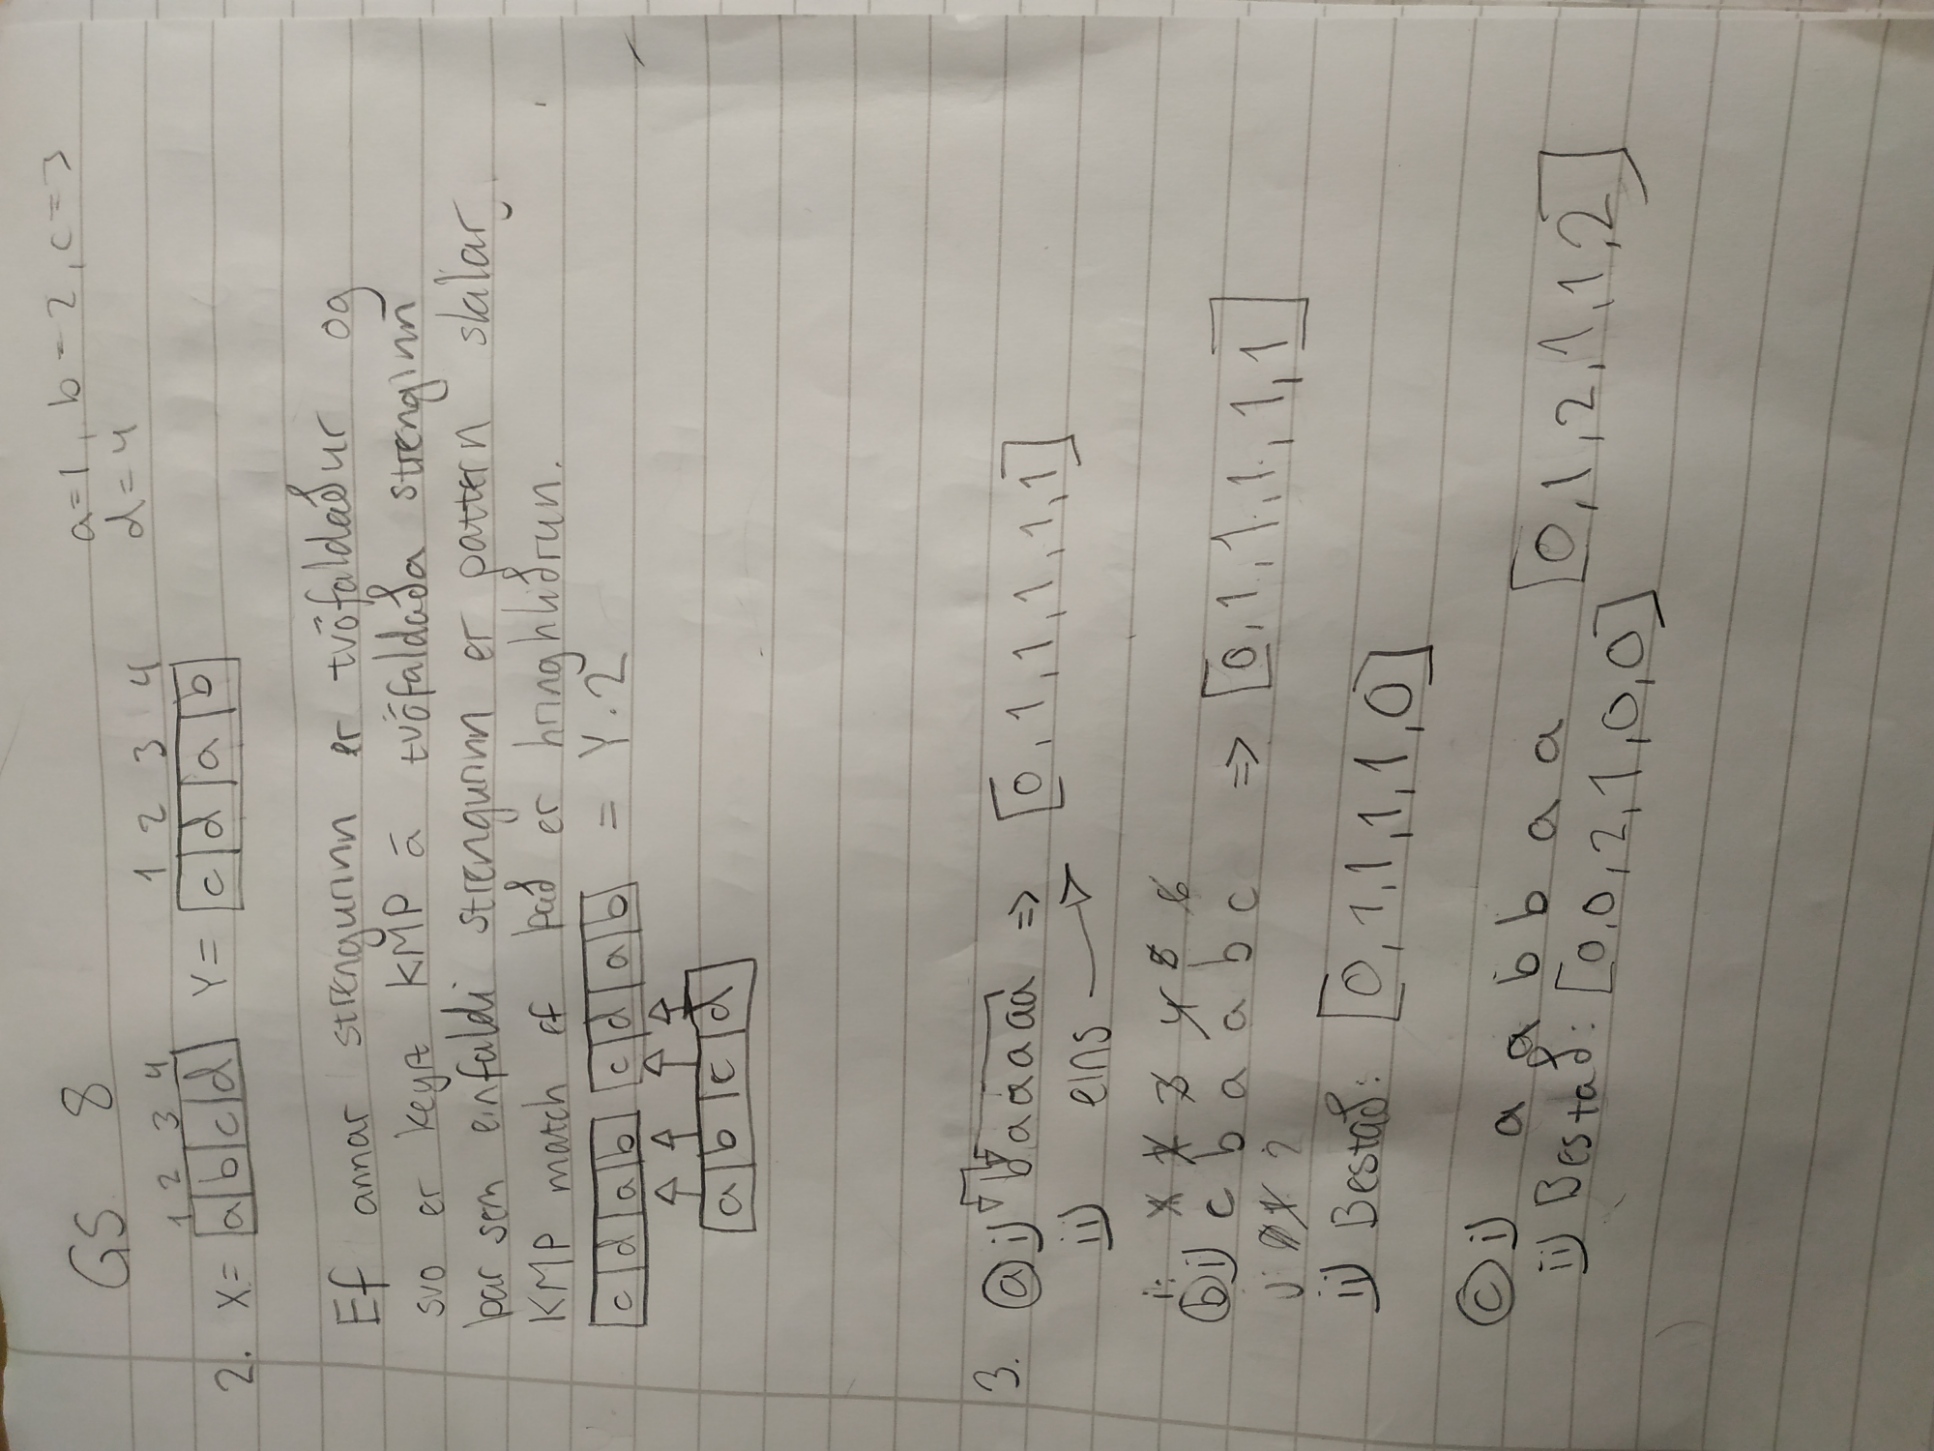 GS 8
a=1, b=2, c=3
d=4
1 2 3 4 1 2 3 4
2. X= a b c d Y= c d a b
Ef annar strengurinn er tvöfaldaður og
svo er keyrt KMP á tvöfaldaða strenginn
þar sem einfaldi strengurinn er pattern skilar
KMP match ef það er hringhliðrun.
c d a b c d a b = Y·2
a b c d
3. a i) b a a a a a => [0, 1, 1, 1, 1, 1]
ii) eins
i: 1 2 3 4 5 6
b i) c b a a b c => [0, 1, 1, 1, 1, 1]
j: 1 2
ii) Bestað: [0, 1, 1, 1, 1, 0]
c i) a a b b a a [0, 1, 2, 1, 1, 2]
ii) Bestað: [0, 0, 2, 1, 0, 0]